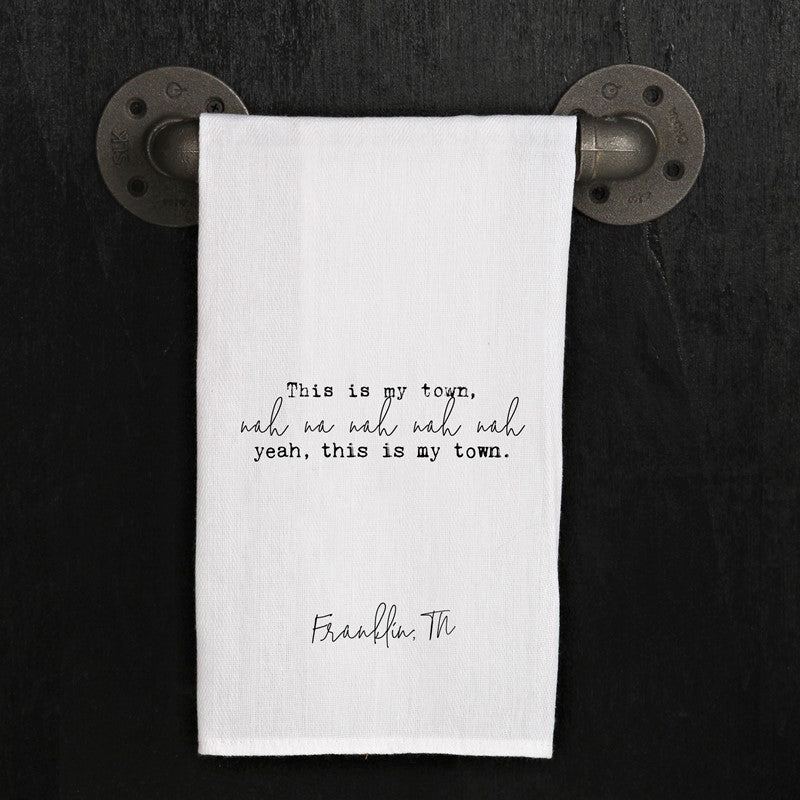 SLK
This is my town,
nah na nah nah nah
yeah, this is my town.
Franklin, TN